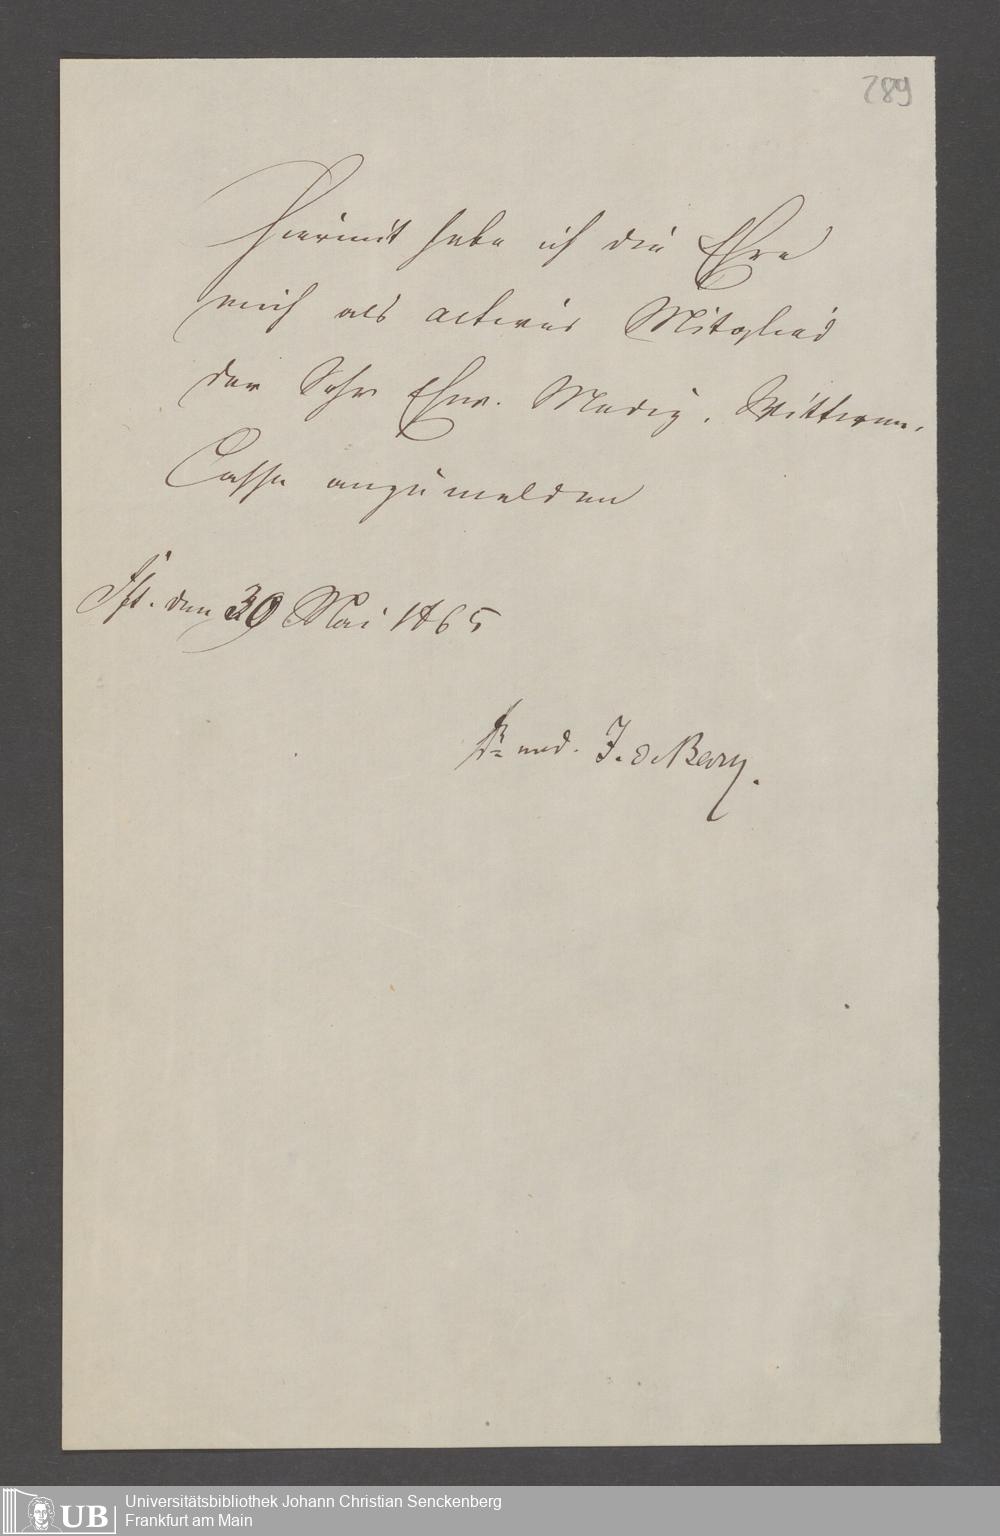 289
Hiermit habe ich die Ehre
mich als actives Mitglied
der Sehr Ehrw. Mediz. Wittwen-
Casse anzumelden
Fft. den 30 Mai 1865
Dr med. J. de Bary.
UB
Universitätsbibliothek Johann Christian Senckenberg
Frankfurt am Main